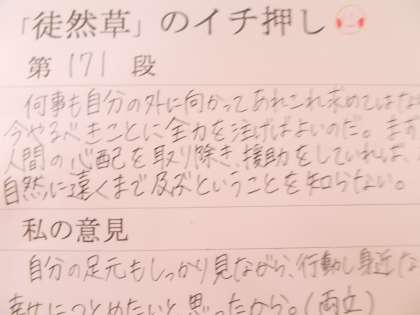 「徒然草」のイチ押し
第 171 段
何事も自分の外に向かってあれこれ求めてはなら
今やるべきことに全力を注げばよいのだ。まず
人間の心配を取り除き、援助をしていれば、
自然に遠くまで及ぶということを知らない。
私の意見
自分の足元もしっかり見ながら、行動し身近な
幸せにつとめたいと思ったから。(両立)